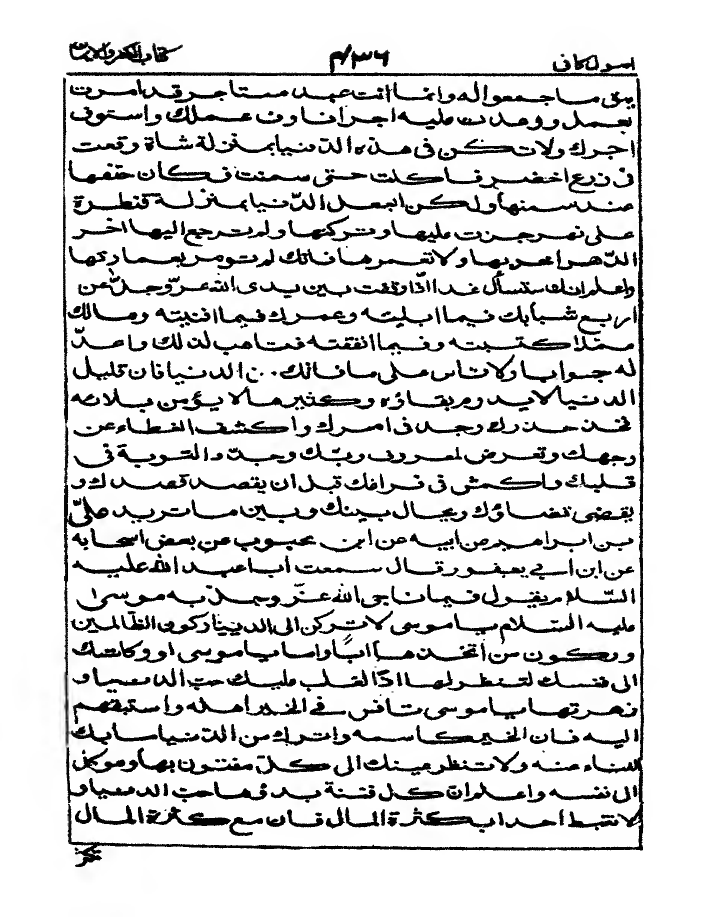 اصول كافى ٤٣٦ كتاب الكفر والايمان
يبق ما جمعوا له وانما انت عبد مستاجر قد امرت
بعمل ووعدت عليه اجرا فاوف عملك واستوفى
اجرك ولا تكن فى هذه الدّنيا بمنزلة شاة وقعت
فى زرع اخضر فاكلت حتى سمنت فكان حتفها
عند سمنها ولكن اجعل الدّنيا بمنزلة قنطرة
على نهر جزت عليها وتركتها ولم ترجع اليها اخر
الدّهر اخربها ولا تعمرها فانك لم تومر بعمارتها
واعلم انك ستسأل غدا اذا وقفت بين يدى الله عزّ وجلّ عن
اربع شبابك فيما ابليته وعمرك فيما افنيته ومالك
ممّا اكتسبته وفيما انفقته فتاهب لذلك واعدّ
له جوابا ولا تاس على ما فاتك من الدنيا فان قليل
الدنيا لا يدوم بقاؤه وكثيرها لا يؤمن بلاءه
فخذ حذرك وجد فى امرك واكشف الغطاء عن
وجهك وتعرض لمعروف ربّك وجدد التوبة فى
قلبك واكمش فى فراغك قبل ان يقصد قصدك و
يقضى قضاؤك ويحال بينك وبين ما تريد علىّ
بن ابراهيم عن ابيه عن ابن محبوب عن بعض اصحابه
عن ابن أبي يعفور قال سمعت أبا عبد الله عليه
السّلام يقول فيما ناجى الله عزّ وجلّ به موسى
عليه السّلام يا موسى لا تركن الى الدنيا ركون الظالمين
وركون من اتخذها اباً واما يا موسى لو وكلتك
الى نفسك لتنظر لها اذا لغلب عليك حب الدنيا و
زهرتها يا موسى نافس في الخير اهله واستبقهم
اليه فان الخير كاسمه واترك من الدّنيا ما بك
الغناء عنه ولا تنظر عينك الى كلّ مفتون بها وموكل
الى نفسه واعلم انّ كل فتنة بدؤها حب الدنيا و
لا تغبط أحدا بكثرة المال فان مع كثرة المال
تكثر